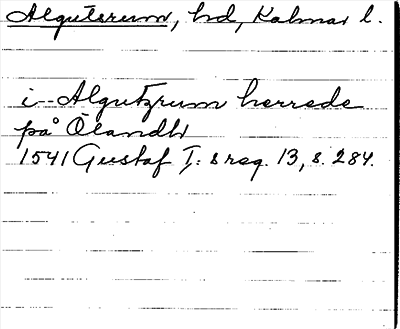 Algutsrum, hd, Kalmar l.
i -- Algutzrum herrede
på Ölandh
1541 Gustaf I:s reg. 13, s. 284.